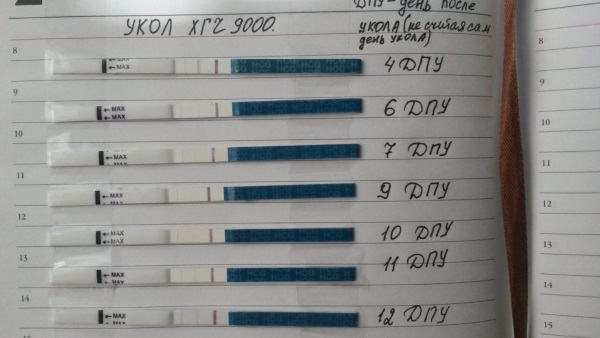 ДПУ – день после
УКОЛ ХГЧ 9000.
УКОЛА (не считая сам
день укола)
8
8
←MAX
4 ДПУ
9
9
←MAX
6 ДПУ
10
10
←MAX
7 ДПУ
11
11
←MAX
9 ДПУ
12
12
←MAX
10 ДПУ
13
13
←MAX
11 ДПУ
14
14
←MAX
12 ДПУ
15